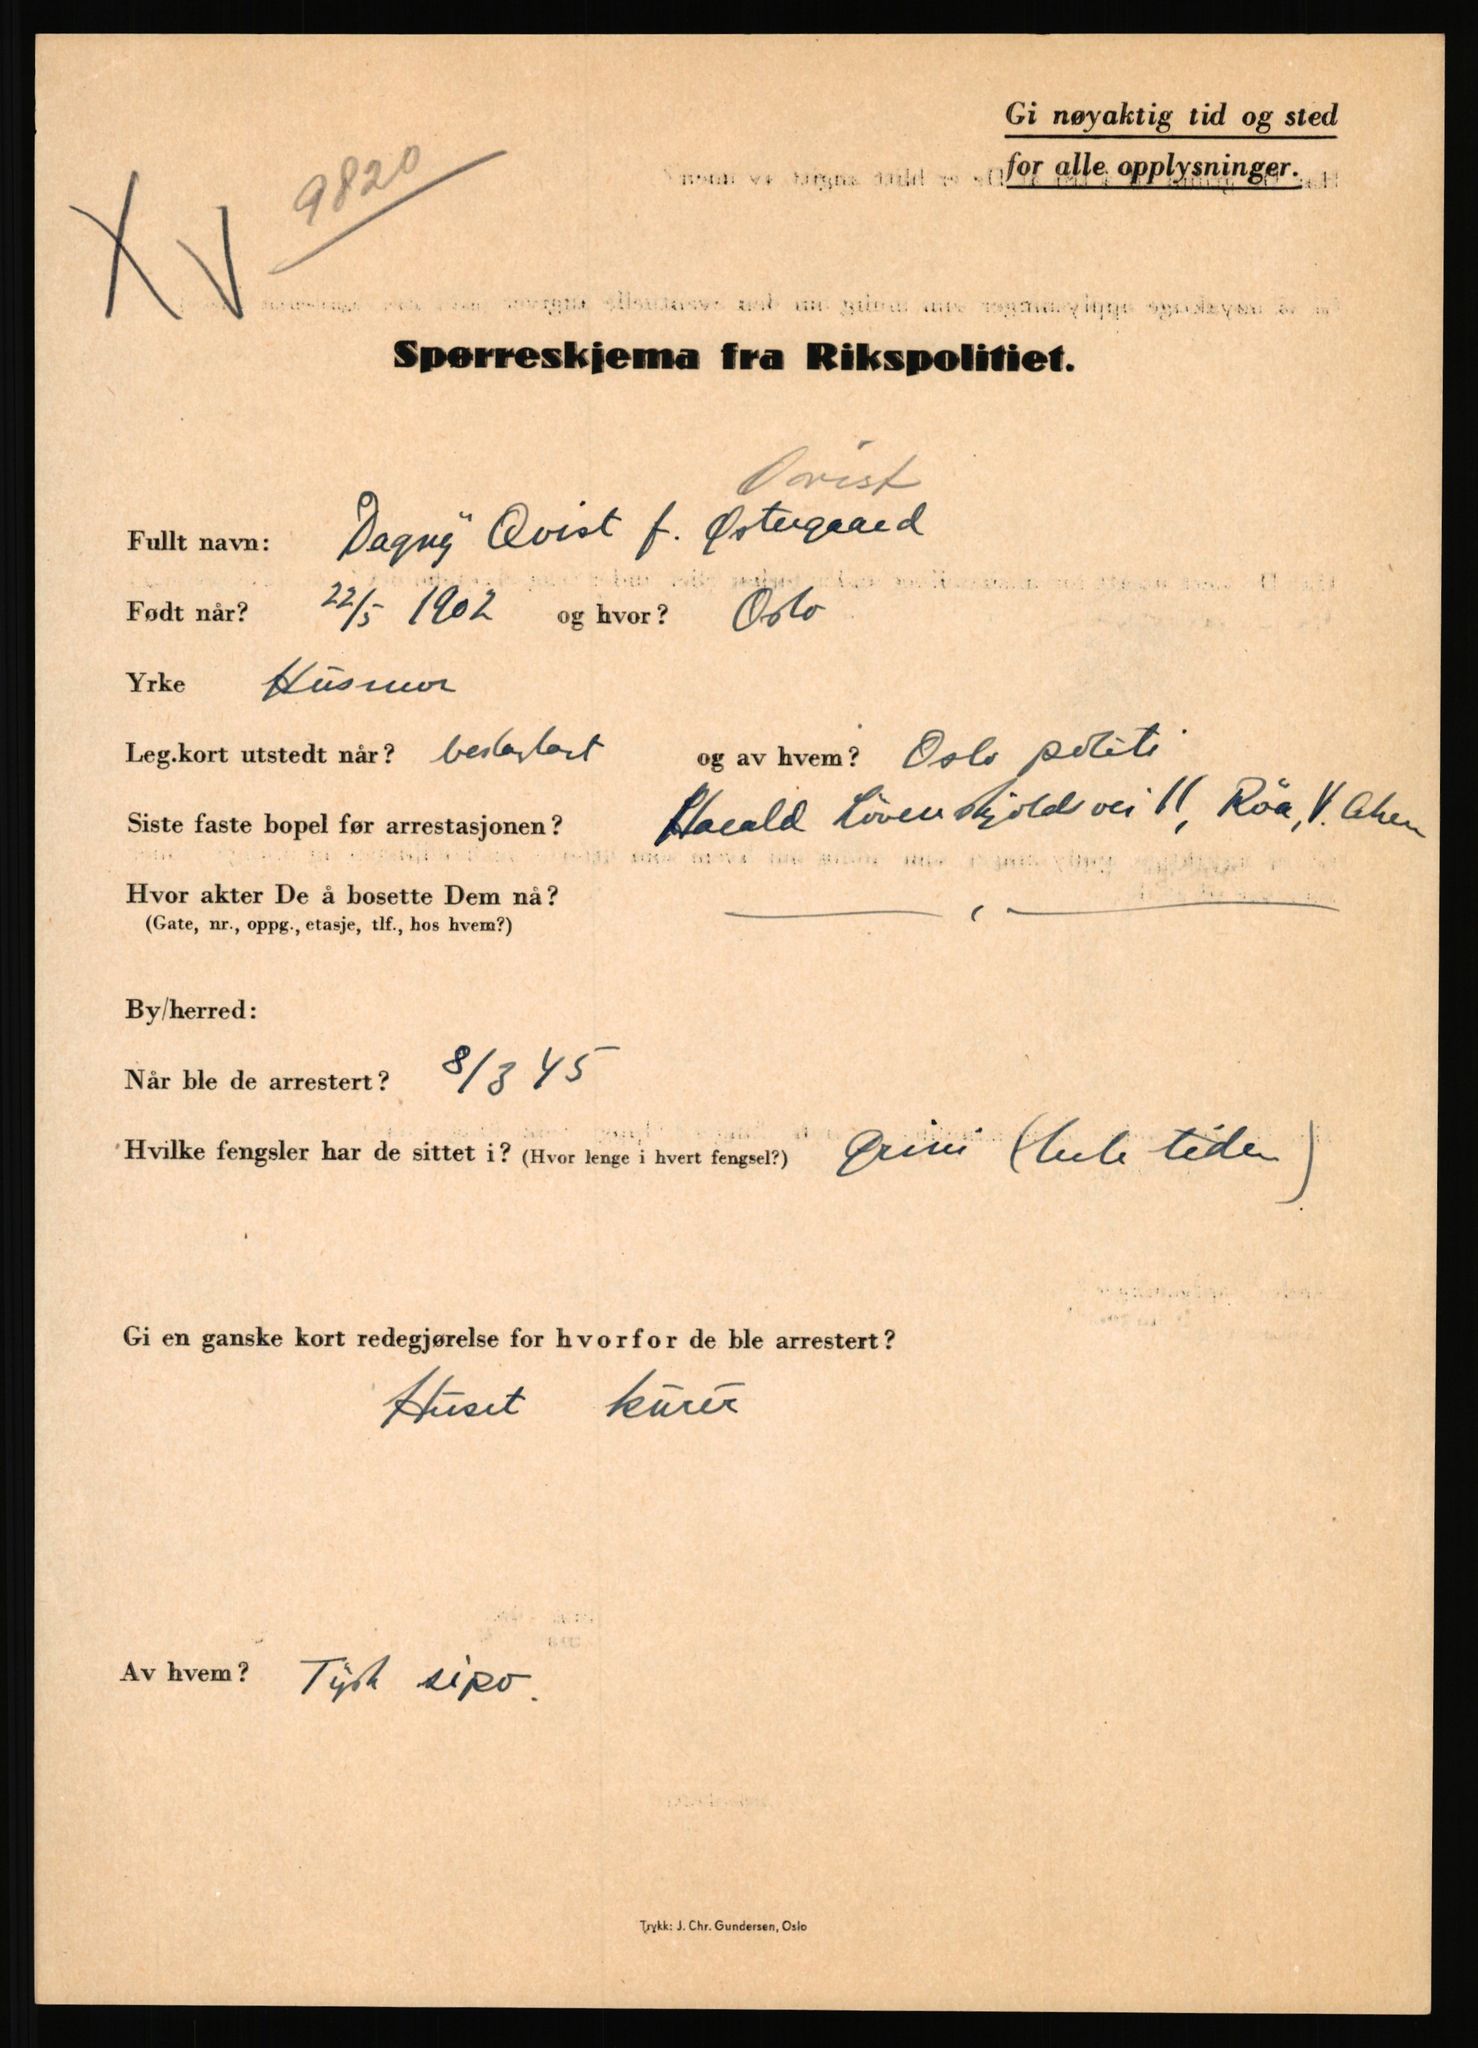 Gi nøyaktig tid og sted
for alle opplysninger.
XV 9820
Spørreskjema fra Rikspolitiet.
Qvist
Fullt navn: Dagny Qvist f. Østergaard
Født når? 22/5 1902 og hvor? Oslo
Yrke Husmor
Leg.kort utstedt når? beslaglagt og av hvem? Oslo politi
Siste faste bopel før arrestasjonen? Harald Løvenskjolds vei 11, Røa, V. Aker
Hvor akter De å bosette Dem nå? — " —
(Gate, nr., oppg., etasje, tlf., hos hvem?)
By/herred:
Når ble de arrestert? 8/3 45
Hvilke fengsler har de sittet i? (Hvor lenge i hvert fengsel?) Grini (hele tiden)
Gi en ganske kort redegjørelse for hvorfor de ble arrestert?
Huset kurér
Av hvem? Tysk sipo.
Trykk: J. Chr. Gundersen, Oslo